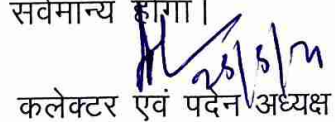 सर्वमान्य होगा।
कलेक्टर एवं पदेन अध्यक्ष